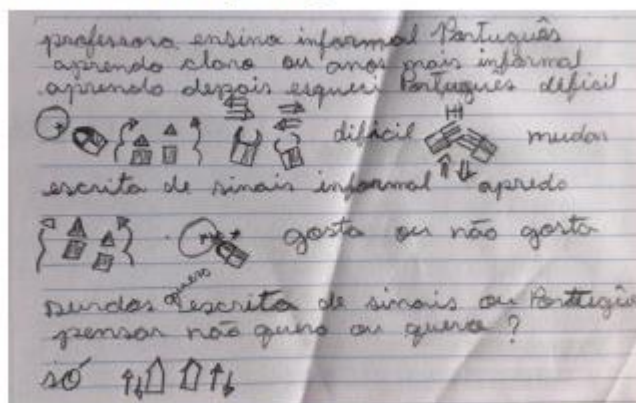 professora ensina informal Português
aprendo claro ou anos mais informal
aprendo depois esqueci Português dificil
difícil mudar
escrita de sinais informal apredo
gosta ou não gosta
surdos quero escrita de sinais ou Porttugü
pensar não quero ou quero?
só